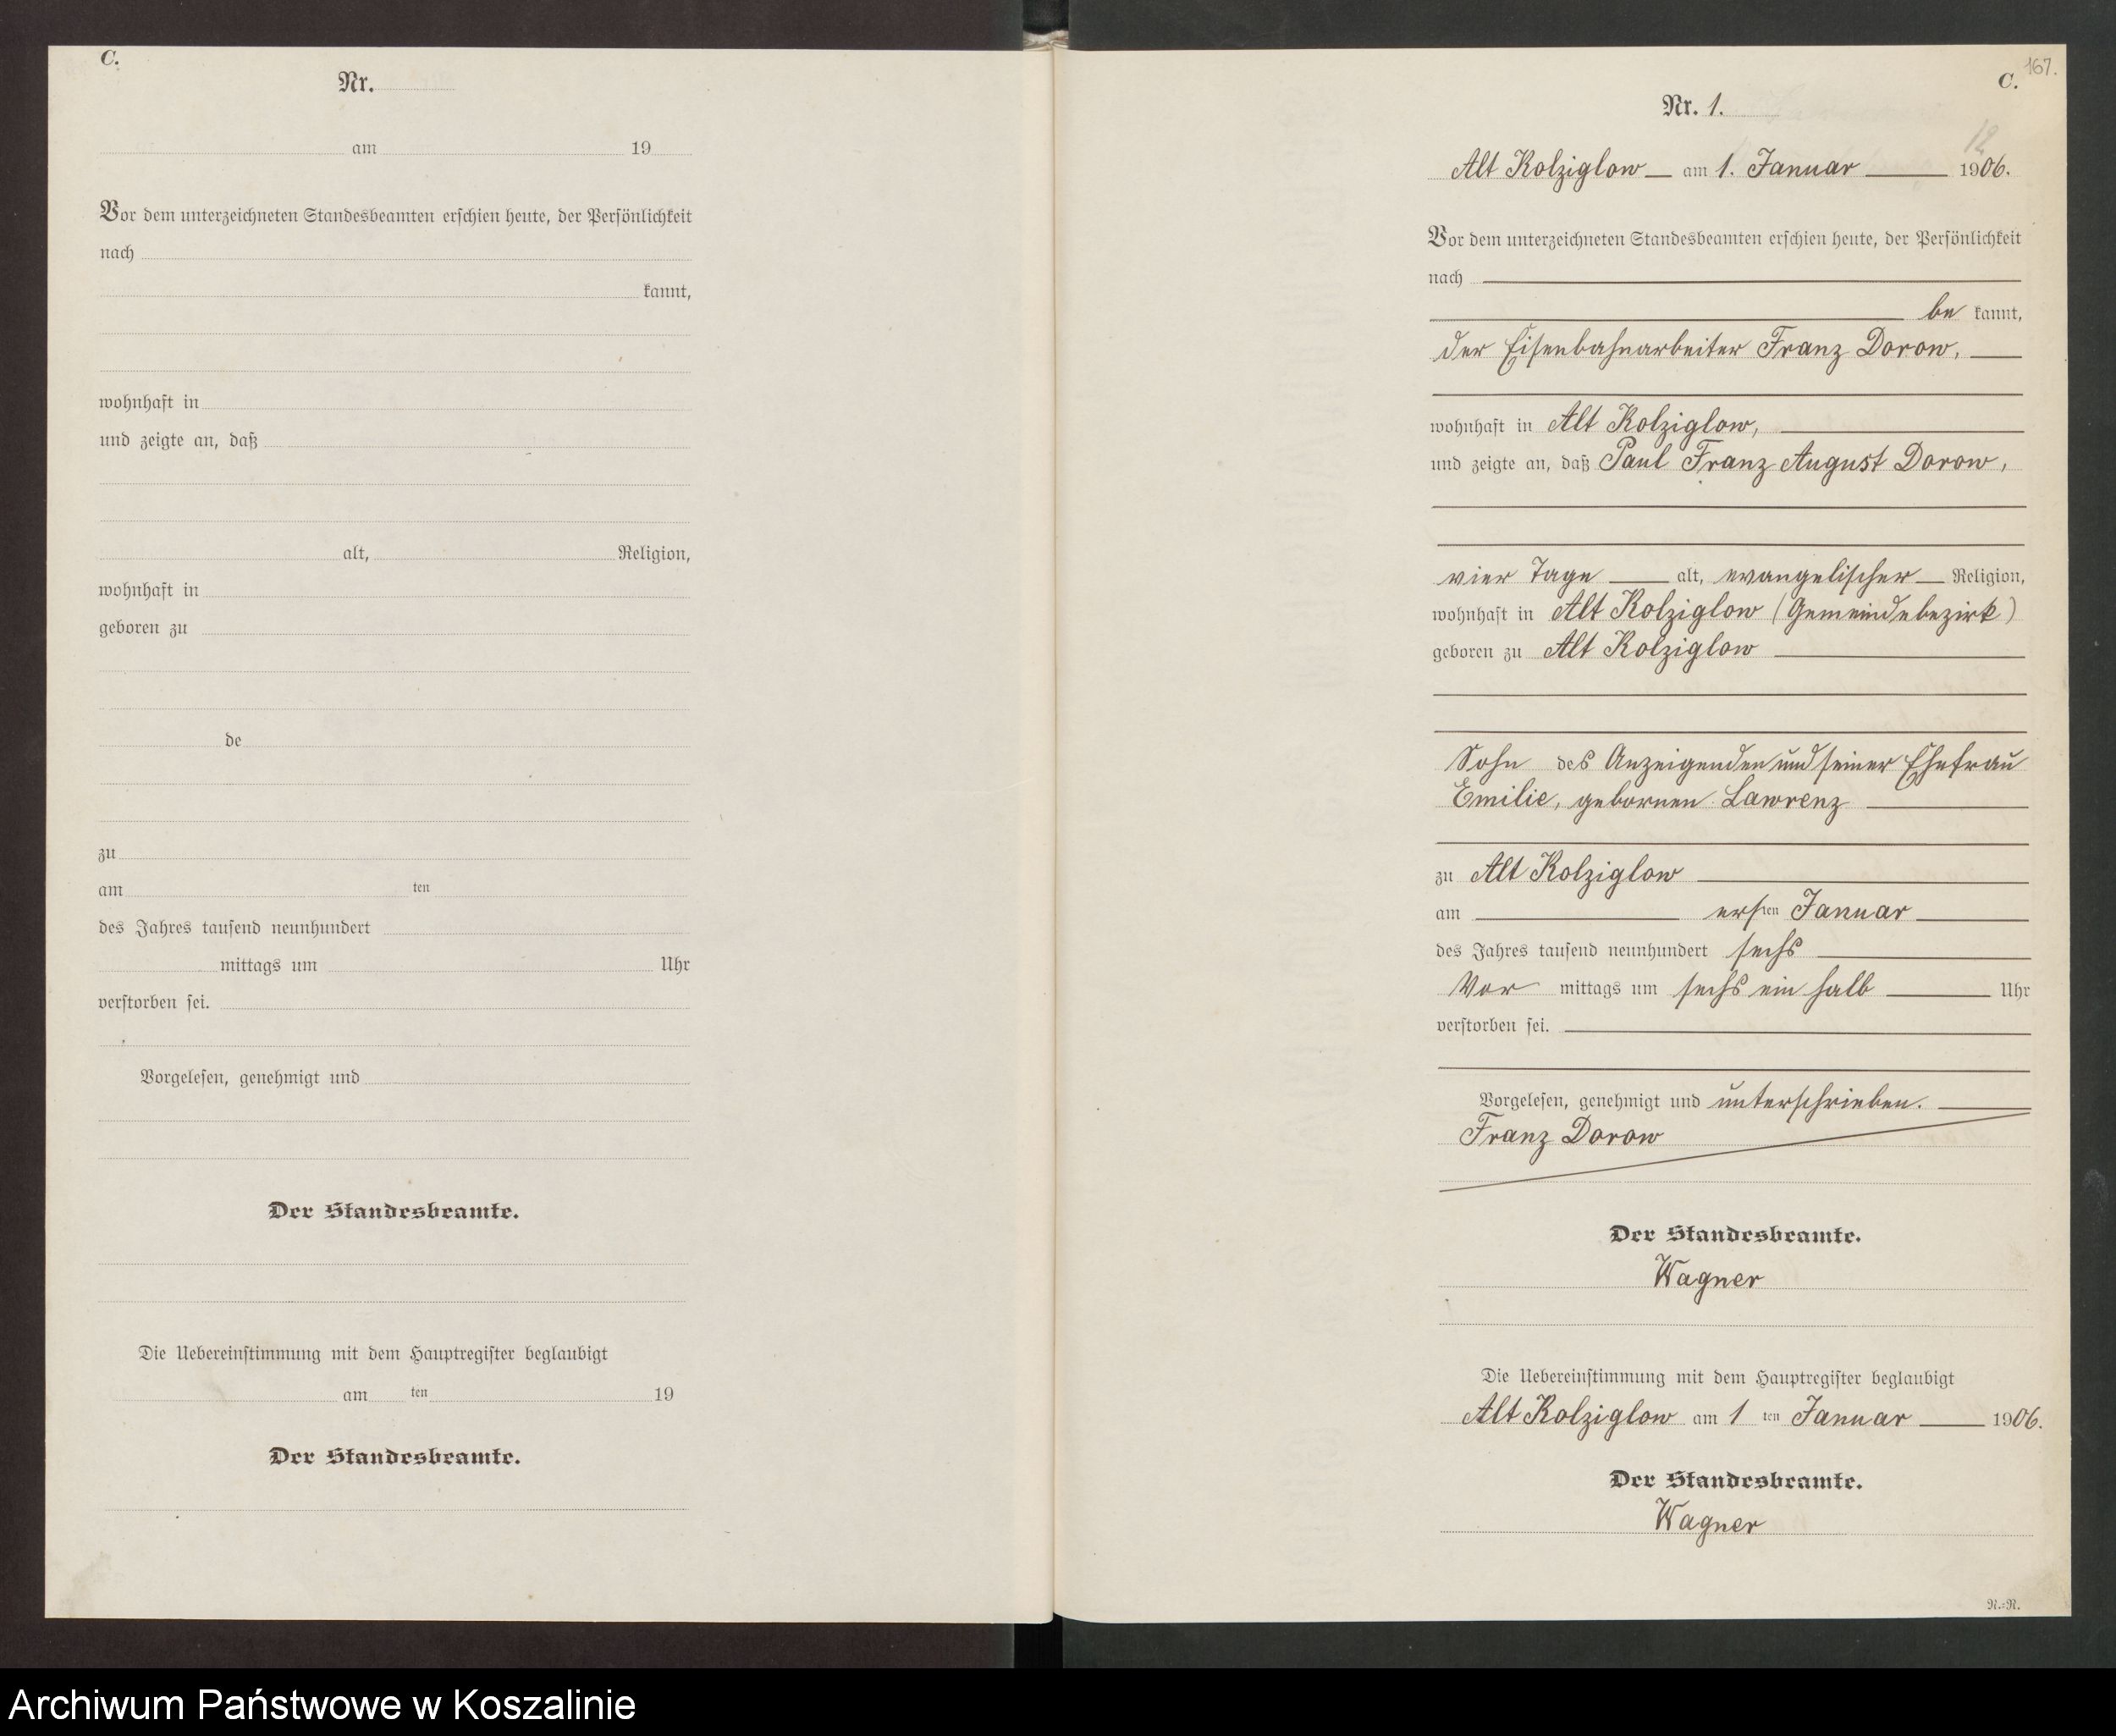 C.
Nr.
am 19
Vor dem unterzeichneten Standesbeamten erschien heute, der Persönlichkeit
nach
kannt,
wohnhaft in
und zeigte an, daß
alt, Religion,
wohnhaft in
geboren zu
de
zu
am ten
des Jahres tausend neunhundert
mittags um Uhr
verstorben sei.
Vorgelesen, genehmigt und
Der Standesbeamte.
Die Uebereinstimmung mit dem Hauptregister beglaubigt
am ten 19
Der Standesbeamte.
167.
C.
Nr. 1.
12
Alt Kolziglow am 1. Januar 1906.
Vor dem unterzeichneten Standesbeamten erschien heute, der Persönlichkeit
nach
be kannt,
der Eisenbahnarbeiter Franz Dorow,
wohnhaft in Alt Kolziglow,
und zeigte an, daß Paul Franz August Dorow,
vier Tage alt, evangelischer Religion,
wohnhaft in Alt Kolziglow (Gemeindebezirk)
geboren zu Alt Kolziglow
Sohn des Anzeigenden und seiner Ehefrau
Emilie, gebornen Lawrenz
zu Alt Kolziglow
am ersten Januar
des Jahres tausend neunhundert sechs
Vor mittags um sechs ein halb Uhr
verstorben sei.
Vorgelesen, genehmigt und unterschrieben.
Franz Dorow
Der Standesbeamte.
Wagner
Die Uebereinstimmung mit dem Hauptregister beglaubigt
Alt Kolziglow am 1 ten Januar 1906.
Der Standesbeamte.
Wagner
N.=N.
Archiwum Państwowe w Koszalinie